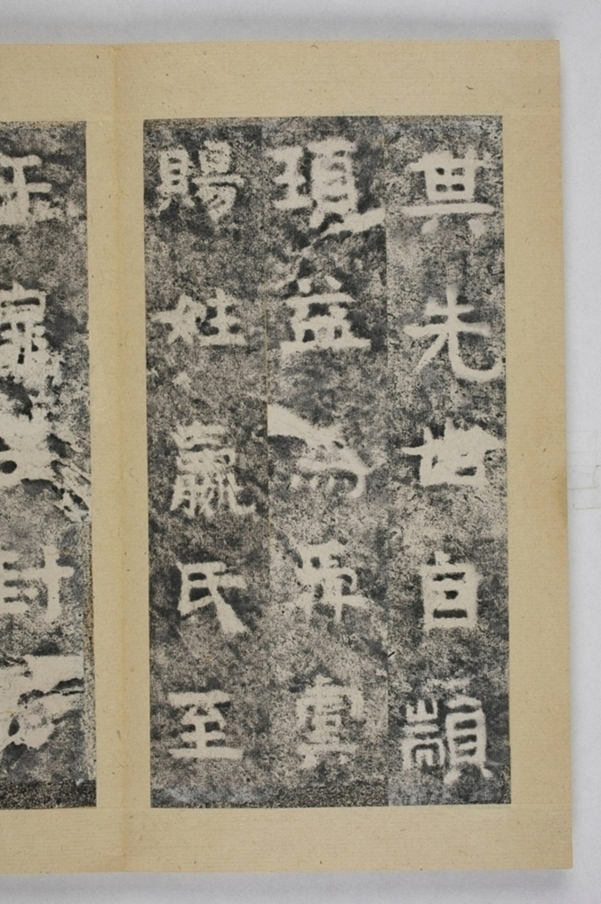 其先世自顓
頊益為舜虞
賜姓嬴氏至
封